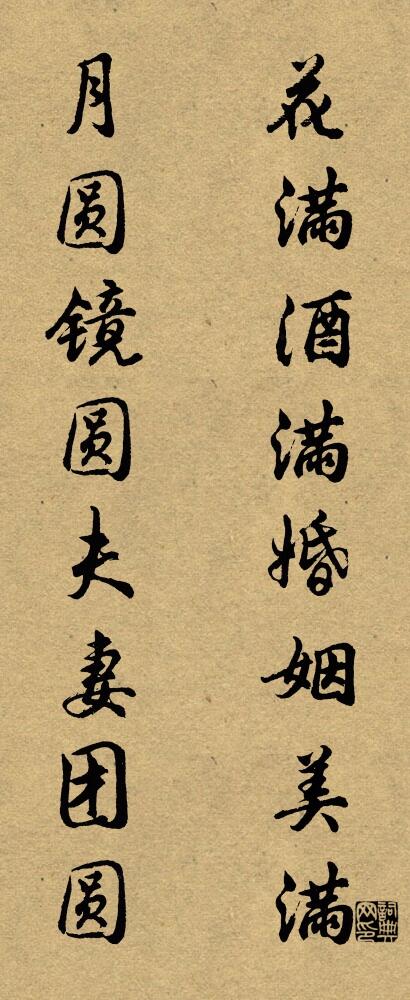 花满酒满婚姻美满
月圆镜圆夫妻团圆
詞典网印